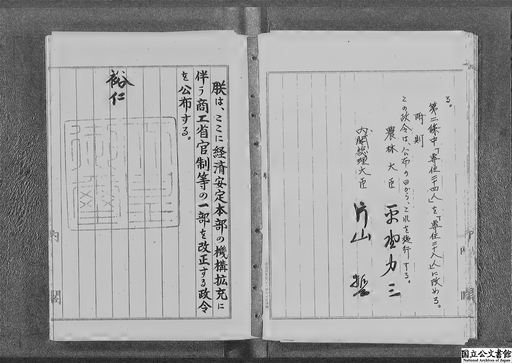 る。
第二條中「專任
を「專任
に改める。
附則
この政令は、公布の日から、これを施行する。
農林大臣 平野力三
内閣総理大臣 片山哲
朕は、ここに経済安定本部の機構拡充に
伴う商工省官制等の一部を改正する政令
を公布する。
裕仁
内閣
国立公文書館
National Archives of Japan